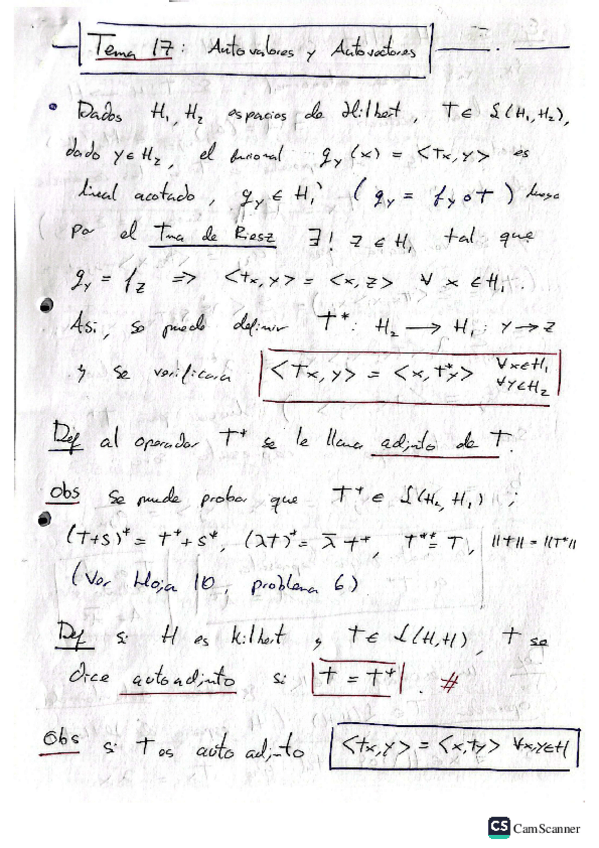 Tema 17: Autovalores y Autovectores
• Dados H₁, H₂ espacios de Hilbert, T ∈ L(H₁,H₂),
dado y ∈ H₂, el funcional g_y(x) = <Tx,y> es
lineal acotado, g_y ∈ H₁' (g_y = f_y∘T) luego
por el Tma de Riesz ∃! z ∈ H₁ tal que
g_y = f_z => <Tx,y> = <x,z> ∀ x ∈ H₁.
Así, se puede definir T*: H₂ → H₁ : y → z
y se verificara <Tx,y> = <x,T*y> ∀x∈H₁
∀y∈H₂
Def al operador T* se le llama adjunto de T.
Obs Se puede probar que T* ∈ L(H₂,H₁);
(T+S)* = T*+S*, (λT)* = λ̄ T*, T** = T, ||T|| = ||T*||
(Ver Hoja 10, problema 6)
Def si H es Hilbert y T ∈ L(H,H), T se
dice autoadjunto si T = T*. #
Obs si T es autoadjunto <Tx,y> = <x,Ty> ∀x,y∈H
CS CamScanner